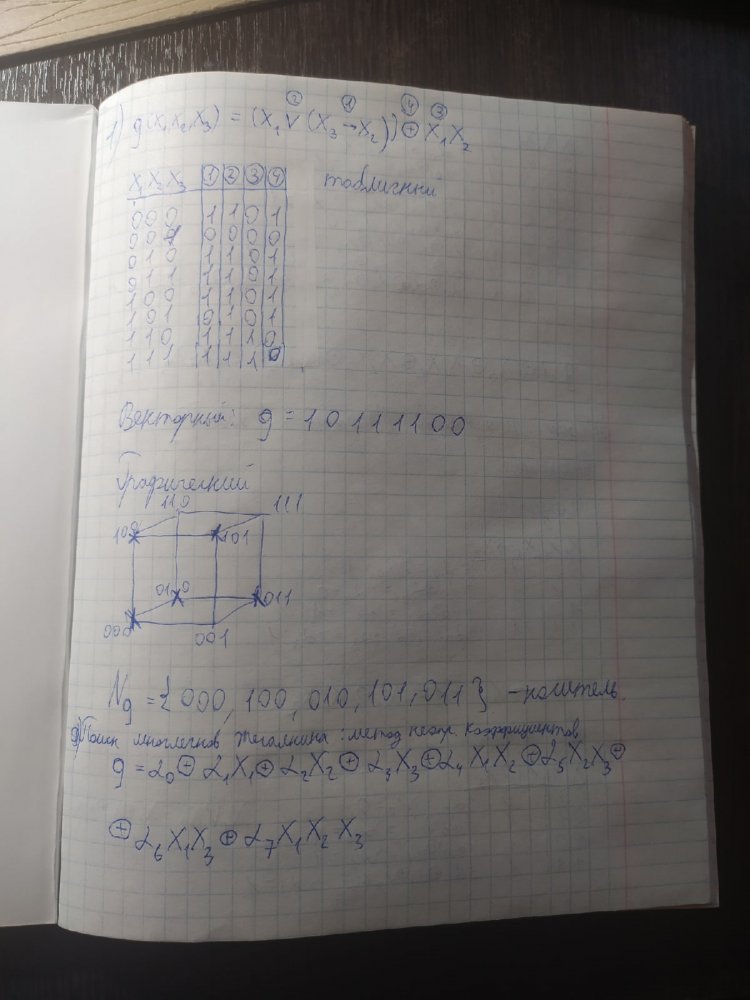 ② ① ④ ③
1) g(x₁x₂x₃) = (x₁ ∨ (x₃ → x₂)) ⊕ x₁x₂
x₁ x₂ x₃ ① ② ③ ④ табличный
0 0 0 1 1 0 1
0 0 1 0 0 0 0
0 1 0 1 1 0 1
0 1 1 1 1 0 1
1 0 0 1 1 0 1
1 0 1 0 1 0 1
1 1 0 1 1 1 0
1 1 1 1 1 1 0
Векторный: g = 1 0 1 1 1 1 0 0
Графический
110 111
100 101
010 011
000 001
N_g = { 000, 100, 010, 101, 011 } - носитель.
2) Поиск многочленов Жегалкина: метод неопр. коэффициентов
g = α₀ ⊕ α₁x₁ ⊕ α₂x₂ ⊕ α₃x₃ ⊕ α₄x₁x₂ ⊕ α₅x₂x₃ ⊕
⊕ α₆x₁x₃ ⊕ α₇x₁x₂x₃